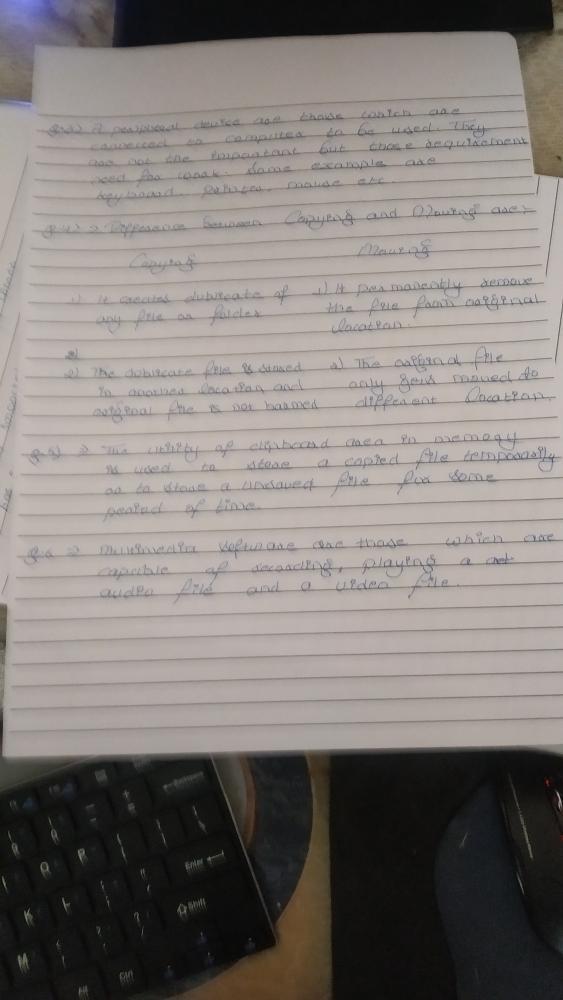 A peripheral device are those which are
connected to computer to be used. They
are not the important but those requirement
need for work. Some example are
keyboard, printer, mouse etc.
Difference between Copying and Moving are:-
Copying
Moving
1) It creates dubricate of
any file or folder
1) It permanently remove
the file from original
location.
2) The dubricate file is stored
in another location and
original file is not harmed
2) The original file
only gets moved to
different location.
The utility of clipboard area in memory
is used to store a copied file temporarily
or to store a unsaved file for some
period of time.
Q.6 Multimedia software are those which are
capable of recording, playing a
audio file and a video file.
Enter
Shift
Alt
Ctrl
O
P
K
L
M